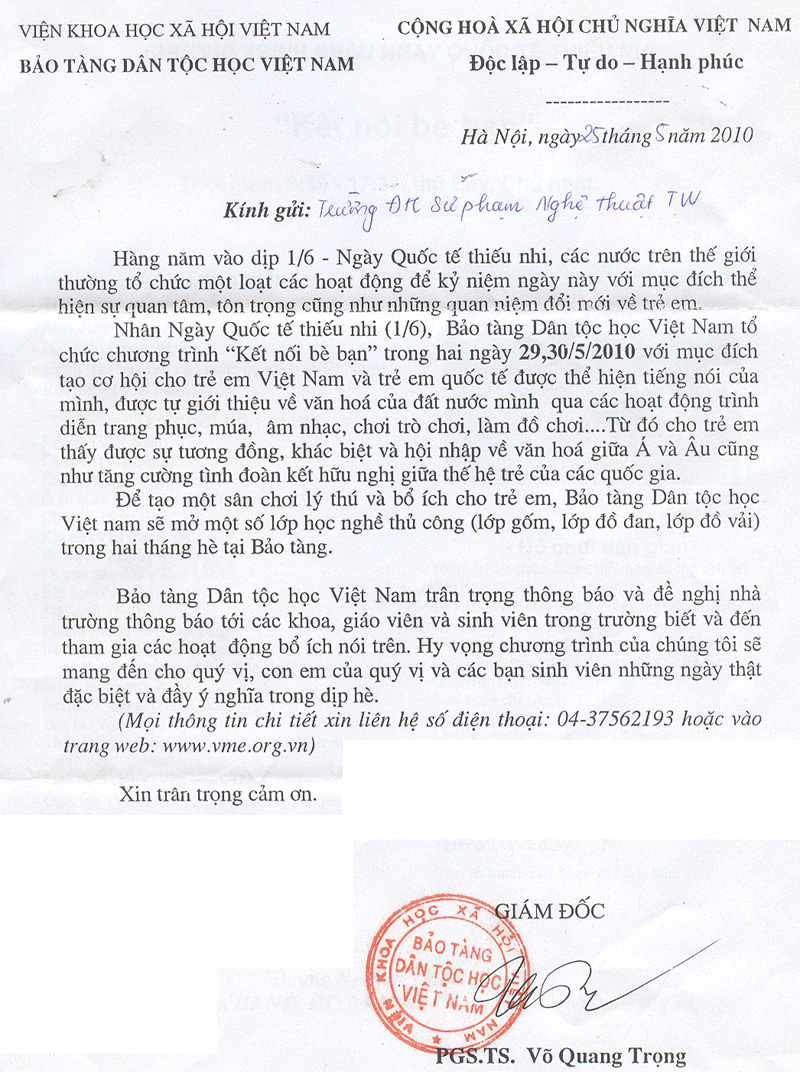 VIỆN KHOA HỌC XÃ HỘI VIỆT NAM
BẢO TÀNG DÂN TỘC HỌC VIỆT NAM
CỘNG HOÀ XÃ HỘI CHỦ NGHĨA VIỆT NAM
Độc lập – Tự do – Hạnh phúc
-----------------
Hà Nội, ngày 25 tháng 5 năm 2010
Kính gửi: Trường ĐH Sư phạm Nghệ thuật TW
Hàng năm vào dịp 1/6 - Ngày Quốc tế thiếu nhi, các nước trên thế giới
thường tổ chức một loạt các hoạt động để kỷ niệm ngày này với mục đích thể
hiện sự quan tâm, tôn trọng cũng như những quan niệm đổi mới về trẻ em.
Nhân Ngày Quốc tế thiếu nhi (1/6), Bảo tàng Dân tộc học Việt Nam tổ
chức chương trình “Kết nối bè bạn” trong hai ngày 29,30/5/2010 với mục đích
tạo cơ hội cho trẻ em Việt Nam và trẻ em quốc tế được thể hiện tiếng nói của
mình, được tự giới thiệu về văn hoá của đất nước mình qua các hoạt động trình
diễn trang phục, múa, âm nhạc, chơi trò chơi, làm đồ chơi....Từ đó cho trẻ em
thấy được sự tương đồng, khác biệt và hội nhập về văn hoá giữa Á và Âu cũng
như tăng cường tình đoàn kết hữu nghị giữa thế hệ trẻ của các quốc gia.
Để tạo một sân chơi lý thú và bổ ích cho trẻ em, Bảo tàng Dân tộc học
Việt nam sẽ mở một số lớp học nghề thủ công (lớp gốm, lớp đồ đan, lớp đồ vải)
trong hai tháng hè tại Bảo tàng.
Bảo tàng Dân tộc học Việt Nam trân trọng thông báo và đề nghị nhà
trường thông báo tới các khoa, giáo viên và sinh viên trong trường biết và đến
tham gia các hoạt động bổ ích nói trên. Hy vọng chương trình của chúng tôi sẽ
mang đến cho quý vị, con em của quý vị và các bạn sinh viên những ngày thật
đặc biệt và đầy ý nghĩa trong dịp hè.
(Mọi thông tin chi tiết xin liên hệ số điện thoại: 04-37562193 hoặc vào
trang web: www.vme.org.vn)
Xin trân trọng cảm ơn.
GIÁM ĐỐC
VIỆN KHOA HỌC XÃ HỘI VIỆT NAM
BẢO TÀNG
DÂN TỘC HỌC
VIỆT NAM
PGS.TS. Võ Quang Trọng